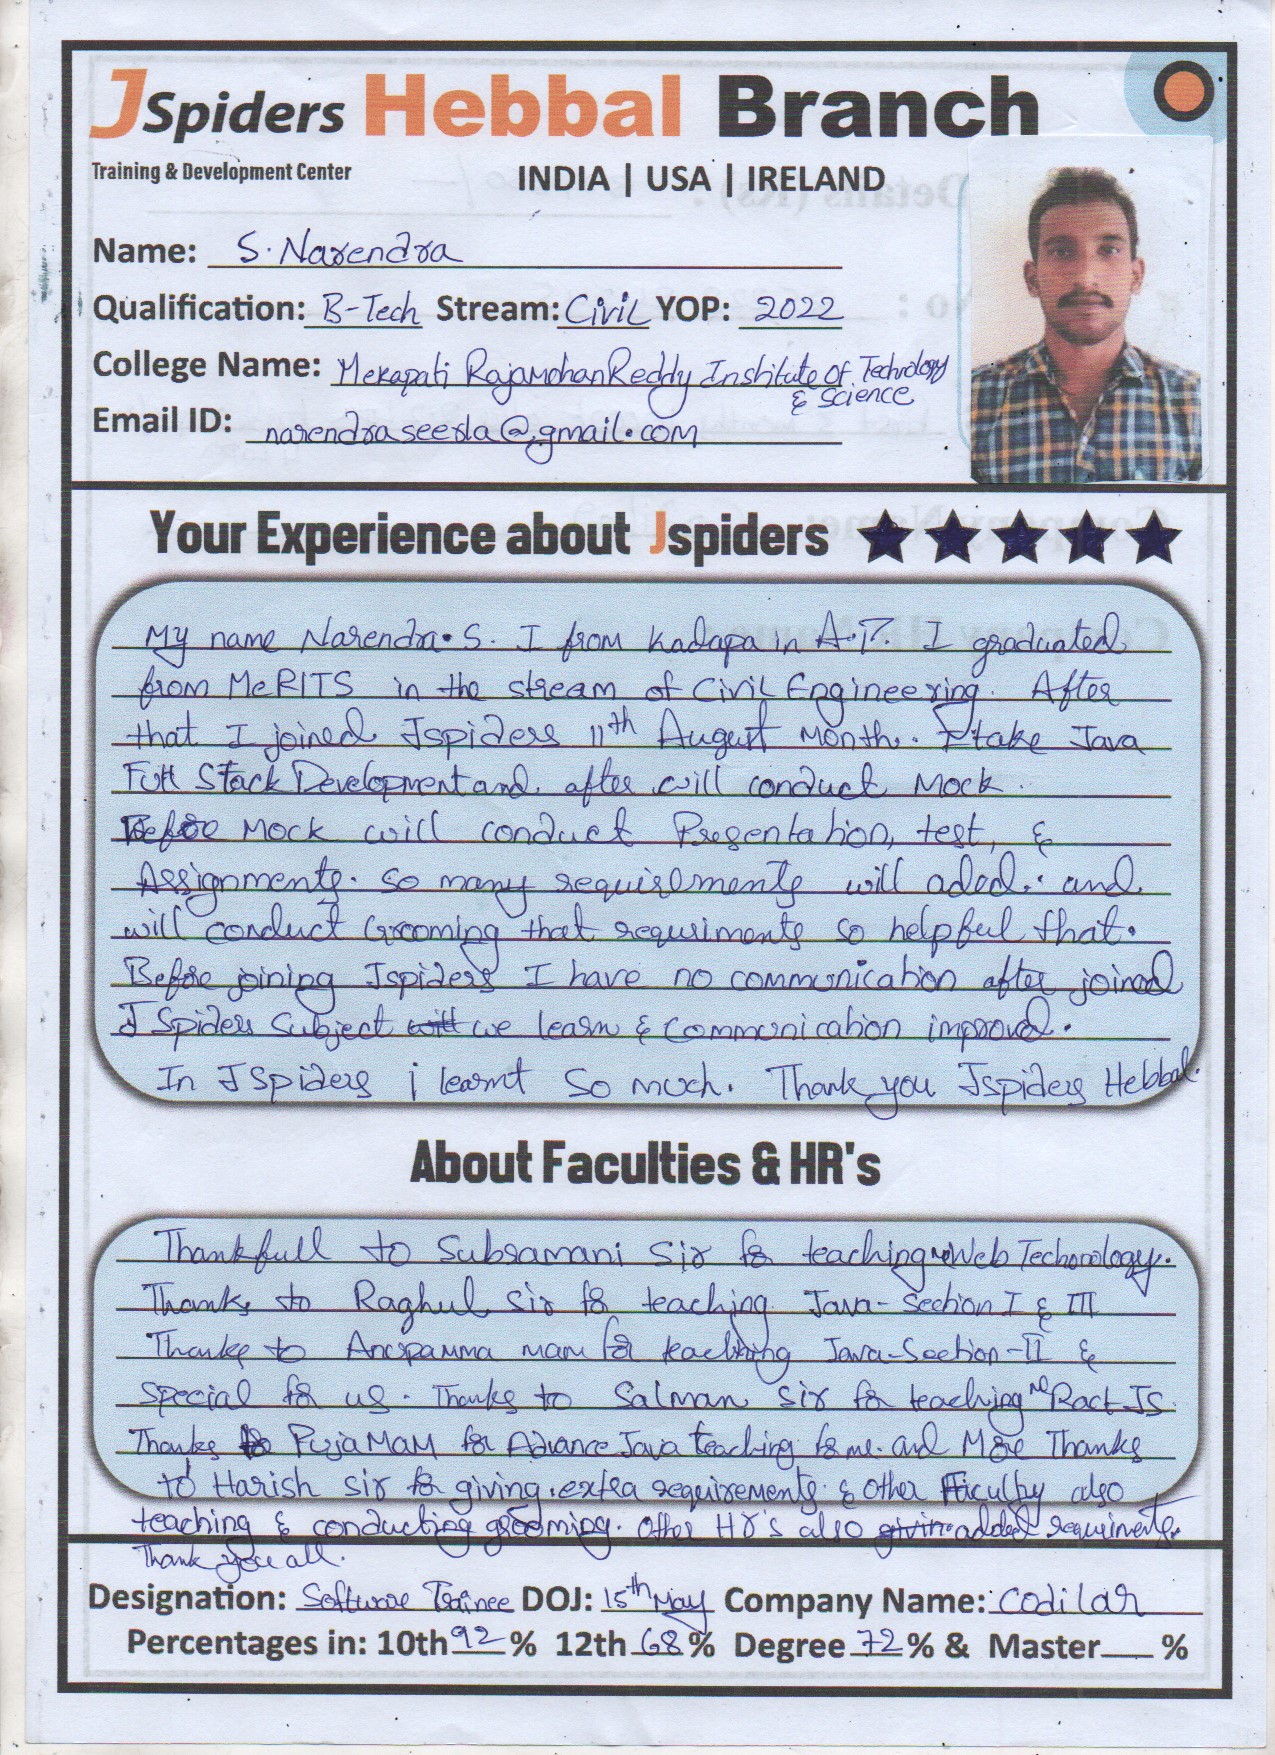 JSpiders Hebbal Branch
Training & Development Center
INDIA | USA | IRELAND
Name: S. Narendra
Qualification: B-Tech Stream: Civil YOP: 2022
College Name: Mekapati RajamohanReddy Institute of Technology
& Science
Email ID: narendraseerla@gmail.com
Your Experience about Jspiders ★★★★★
My name Narendra. S. I from Kadapa in A.P. I graduated
from MeRITS in the stream of Civil Engineering. After
that I joined Jspiders 11th August Month. I take Java
Full Stack Development and after will conduct Mock.
Before Mock will conduct Presentation, test, &
Assignments. So many requirements will aded. and
will conduct Grooming that requsiments so helpful that.
Before joining Jspiders I have no communication after joined
J Spiders Subject will we learn & communication improved.
In JSpiders i learnt so much. Thank you Jspiders Hebbal.
About Faculties & HR's
Thankfull to Subramani Sir for teaching me Web Techonology.
Thanks to Raghul sir for teaching Java-Section I & III
Thanks to Anupamma mam for teaching Java-Section-II &
Special for us. Thanks to Salman sir for teaching me Ract JS.
Thanks to Puja Mam for Advance Java teaching for me. and More Thanks
to Harish sir for giving extra requirements & other Faculty also
teaching & conducting grooming. Other HR's also givin added requiments.
Thank you all.
Designation: Software Trainee DOJ: 15th May Company Name: Codilar
Percentages in: 10th 92 % 12th 68 % Degree 72 % & Master %